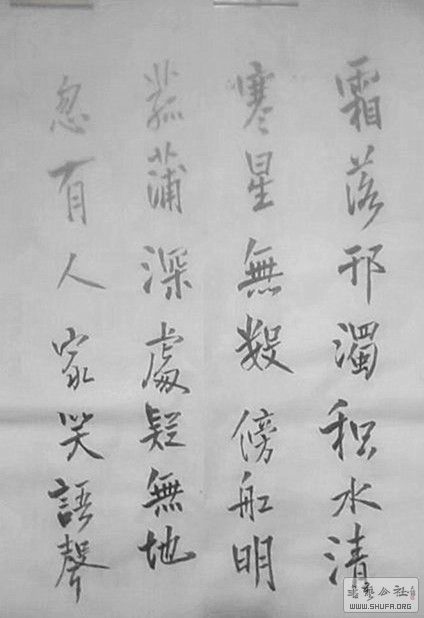 霜落邗濁积水清
寒星無数傍舡明
菰蒲深處疑無地
忽有人家笑語聲
书艺公社
WWW.SHUFA.ORG